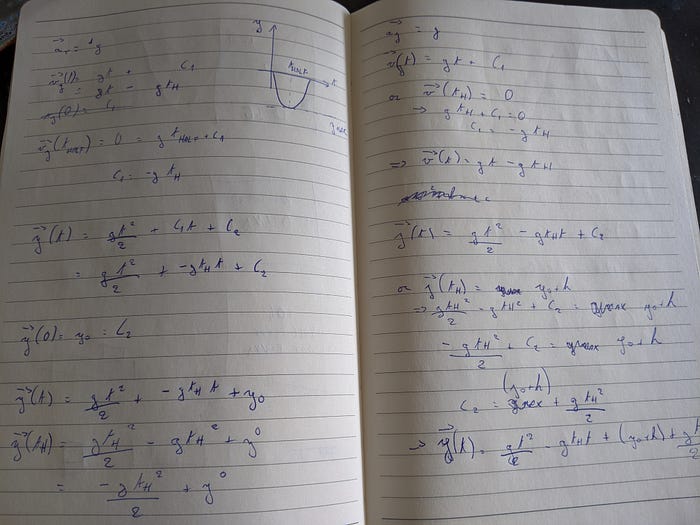 y
t
a⃗y = g
v⃗y(t) = gt + C1
= gt - gtH
vy(0) = C1
v⃗y(t) = 0 = g t + C1
C1 = -g tH
y⃗(t) = gt²/2 + C1t + C2
= gt²/2 + -gtHt + C2
y⃗(0) = y0 = C2
y⃗(t) = gt²/2 + -gtHt + y0
y⃗(tH) = gtH²/2 - gtH² + y0
= -gtH²/2 + y0
a⃗y = g
v⃗y(t) = gt + C1
or v⃗(tH) = 0
→ gtH + C1 = 0
C1 = -gtH
=> v⃗(t) = gt - gtH
y⃗(t) = gt²/2 - gtHt + C2
or y⃗(tH) = y0+h
=> gtH²/2 - gtH² + C2 = ymax y0+h
-gtH²/2 + C2 = ymax y0+h
(y0+h)
C2 = ymax + gtH²/2
→ y⃗(t) = gt²/2 - gtHt + (y0+h) + gt²/2